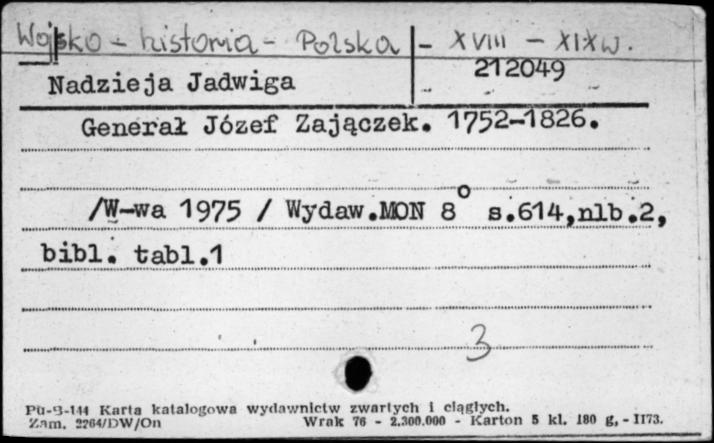 Wojsko - historia - Polska - XVIII - XIXw.
Nadzieja Jadwiga 212049
Generał Józef Zajączek. 1752-1826.
/W-wa 1975 / Wydaw.MON 8° s.614,nlb.2,
bibl. tabl.1
3
Pu-B-144 Karta katalogowa wydawnictw zwartych i ciągłych.
Zam. 2264/DW/On Wrak 76 - 2.300.000 - Karton 5 kl. 180 g, - II73.